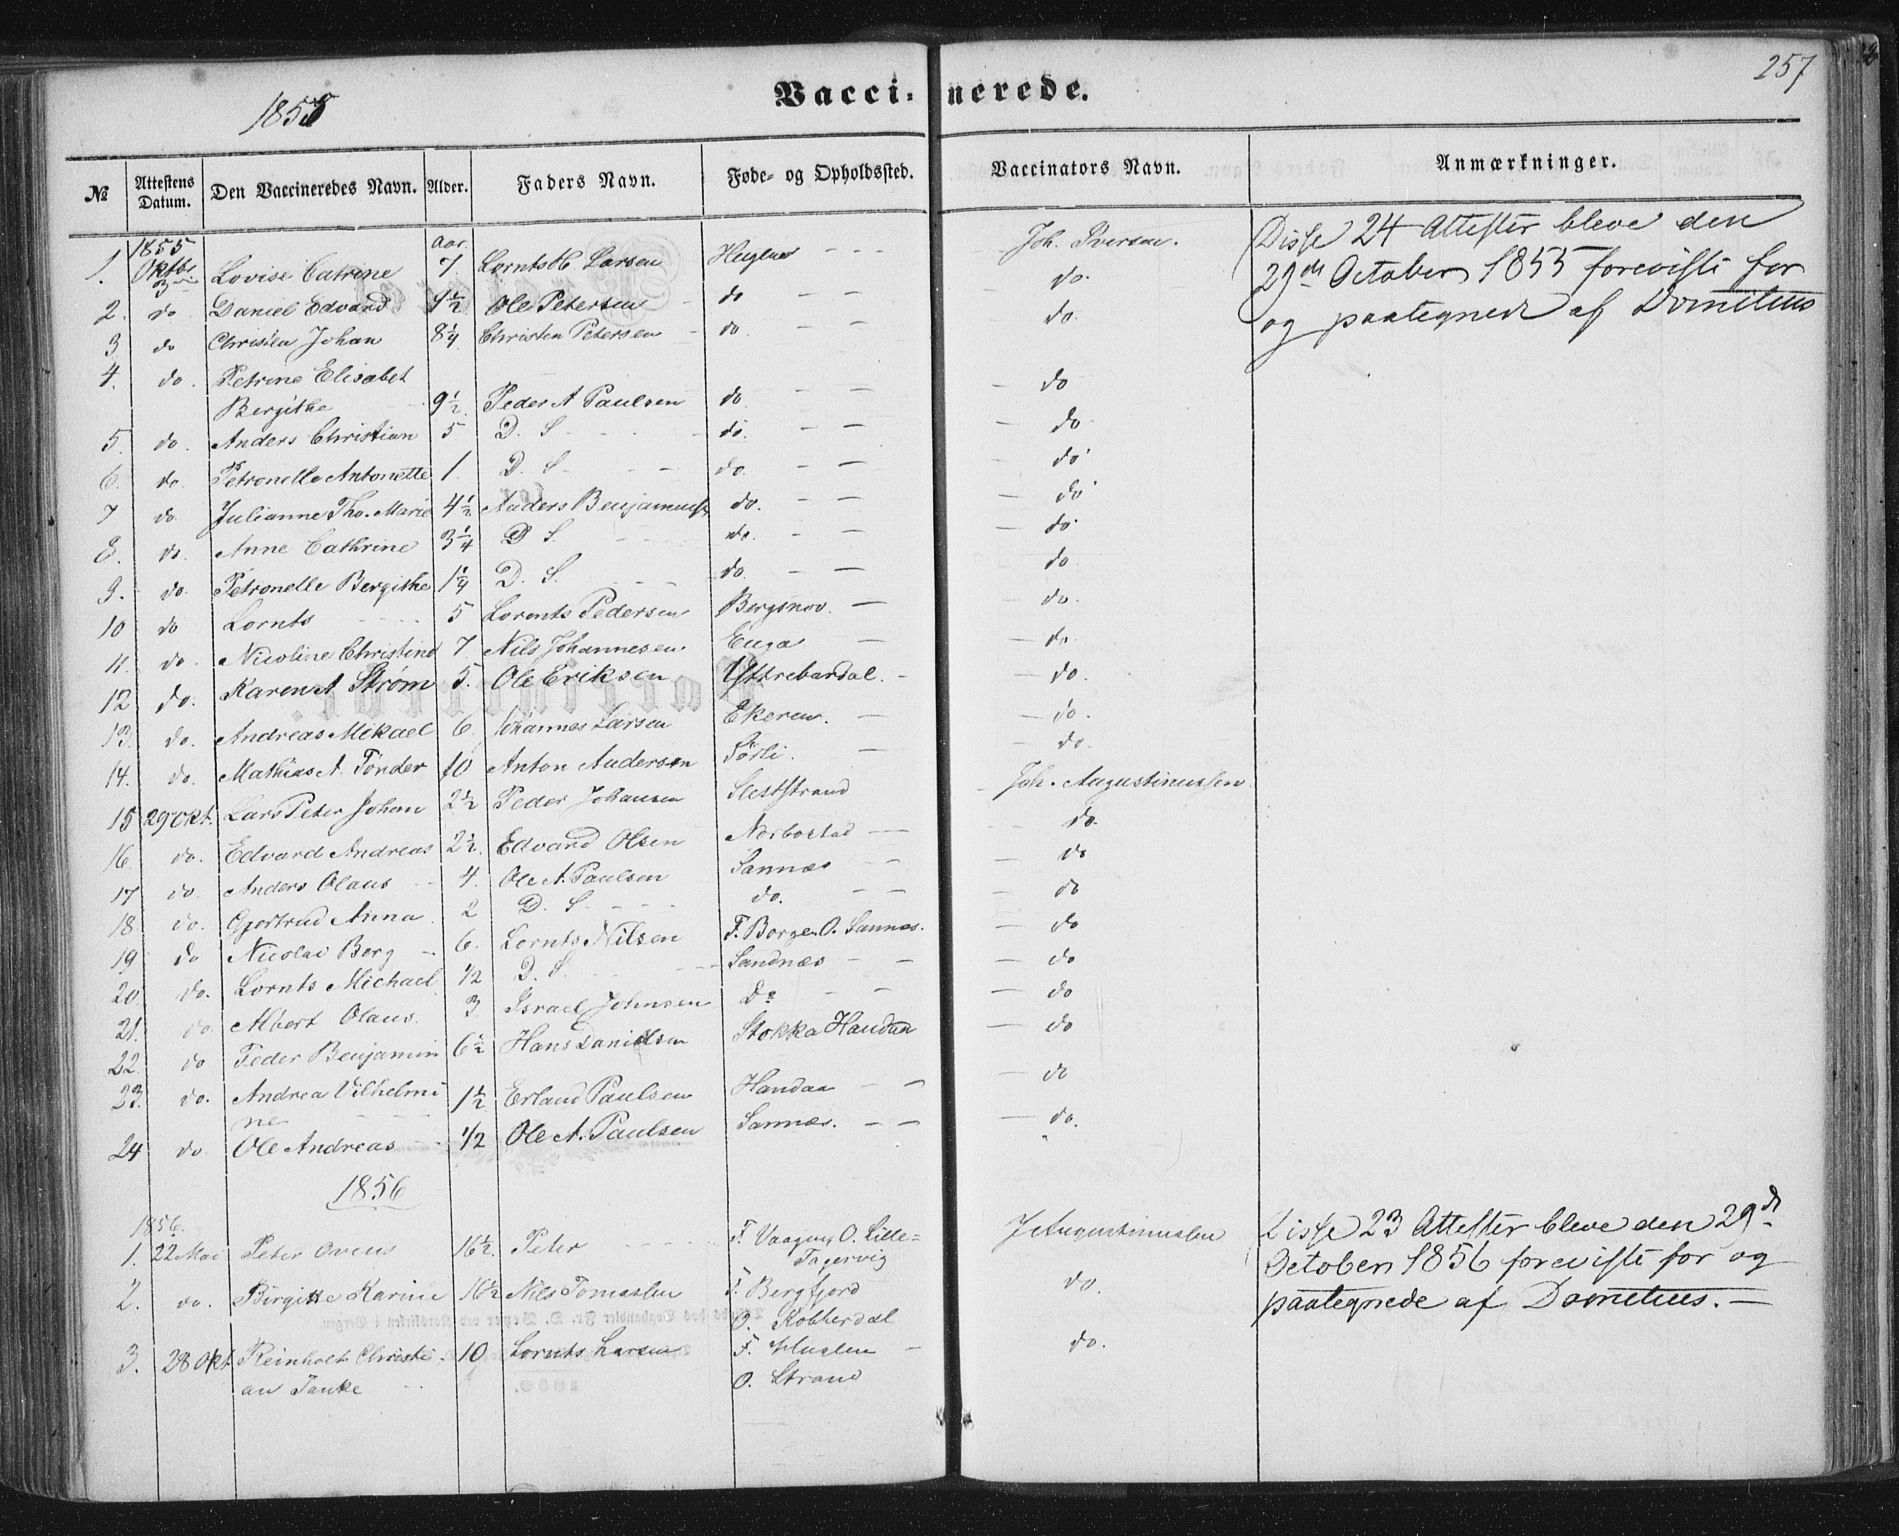 257
1855
Vacci-nerede.
№ Attestens Datum. Den Vaccineredes Navn. Alder. Faders Navn. Føde- og Opholdssted. Vaccinators Navn. Anmærkninger.
1. 1855 Oktbr 3 Lovise Catrine aar. 7 Lornts H Larsen Huglen - - - Joh. Iversen. Disse 24 Attester bleve den
29de October 1855 foreviste for
og paategnede af Domitius
2. do Daniel Edvard 4½ Ole Petersen do - - - do.
3 do Christen Johan 8¼ Christen Petersen - do - - do.
4. do. Petrine Elisabet
Bergithe 9½ Peder A Paulsen do - - - do
5. do. Anders Christian 5 D. S. - - - do. - - - do.
6. do. Petronelle Antonette 1. D. S. - - do. - - - do.
7 do. Julianne Tho. Marie 4½ Anders Benjamins. do. - do.
8. do. Anne Cathrine 3¼ D S. - - - do. - - - do.
9. do. Petronelle Bergithe 1¼ D. S. - - do. - - - do.
10 do Lornts - - - - 5 Lorents Pedersen Bergsnov. - - do.
11. do. Nicoline Christine 7 Nils Johannesen. Enga - - do.
12 do. Karen A Strøm 5. Ole Eriksen Yttrebardal. - - do.
13. do. Andreas Mikael 6. Johannes Larsen Ekeren. - - do.
14. do. Mathias A. Tönder 10 Anton Andersen Sörli. - - do.
15 29 Okt. Lars Peter Johan 2½ Peder Johansen Sleststrand - Joh. Augustinussen
16. do. Edvard Andreas 2½. Edvard Olsen Norbostad - - do.
17 do. Anders Olaus - 4. Ole A. Paulsen Sannæs - - - do
18. do. Gjertrud Anna 2 D. S. - - - - do. - - - do
19 do Nicolai Berg - 6. Lornts Nilsen F. Borgen O. Sannæs. - do
20. do. Lornts Michael ½ D. S. - - Sandnæs - - - do
21. do Albert Olaus. 3. Israel Johnsen Do - - - do
22. do Peder Benjamin 6½ Hans Danielsen Stokka Handaa - do
23. do. Andrea Vilhelmi
ne 1½ Erland Paulsen Handaa - - - do
24 do. Ole Andreas - ½ Ole A. Paulsen Sannæs. - - - do.
1856
1856.
1. 22 Mai Peter Ovens 16½. Peter - - - - F. Vaagung O. Lille-
Tagervig J Augustinussen Disse 23 Attester bleve den 29de
October 1856 foreviste for og
paategnede af Domitius. -
2. do. Birgitte Karine 16½ Nils Tomassen F. Bergfjord
O. Kobherdal do.
3. 28 Okt. Reinholt Christi-
an Tanke - - 10 Lornts Larsen F. Huglen -
O. Strand do.